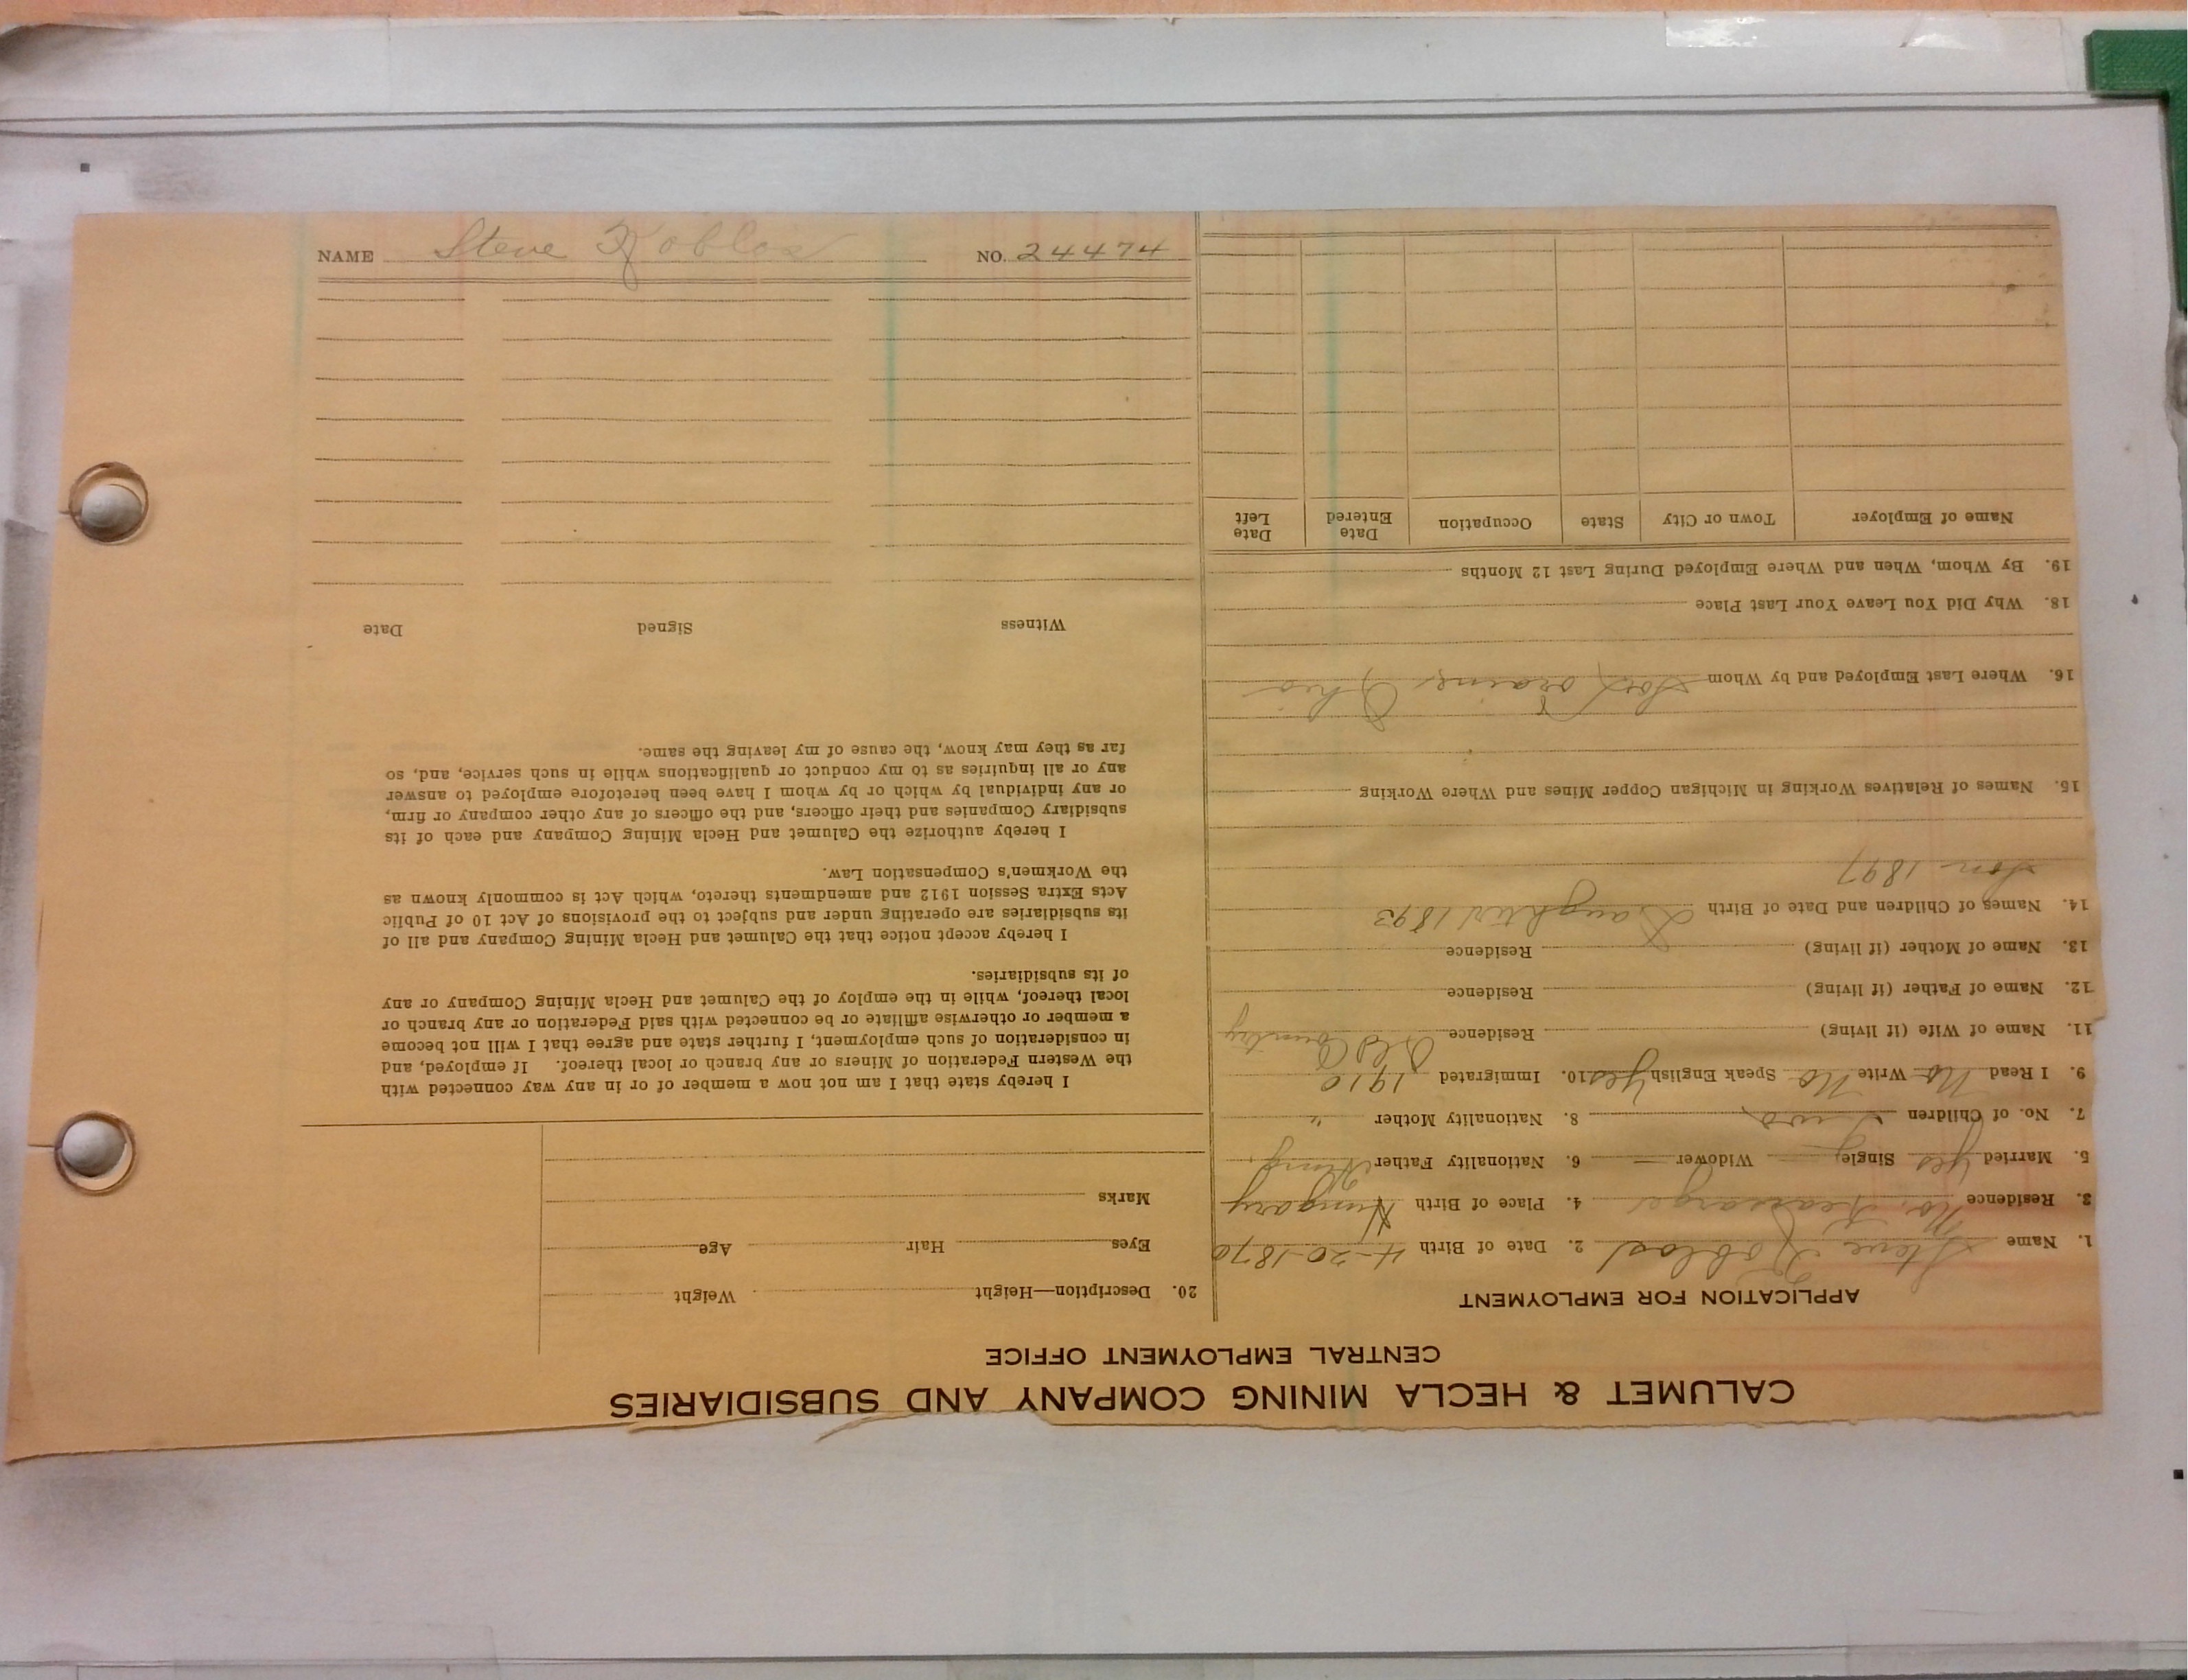 CALUMET & HECLA MINING COMPANY AND SUBSIDIARIES
CENTRAL EMPLOYMENT OFFICE
APPLICATION FOR EMPLOYMENT
1. Name Steve Koblos 2. Date of Birth 4-20-1870
3. Residence No. Kearsarge 4. Place of Birth Hungary
5. Married Yes Single Widower — 6. Nationality Father Hung.
7. No. of Children Two 8. Nationality Mother "
9. I Read No Write No Speak English Yes 10. Immigrated 1910
11. Name of Wife (if living) Residence Old Country
12. Name of Father (if living) Residence
13. Name of Mother (if living) Residence
14. Names of Children and Date of Birth Daughter 1893
Son 1897
15. Names of Relatives Working in Michigan Copper Mines and Where Working
16. Where Last Employed and by Whom Loraine Ohio
18. Why Did You Leave Your Last Place
19. By Whom, When and Where Employed During Last 12 Months
Name of Employer Town or City State Occupation Date Entered Date Left
20. Description—Height Weight
Eyes Hair Age
Marks
I hereby state that I am not now a member of or in any way connected with
the Western Federation of Miners or any branch or local thereof. If employed, and
in consideration of such employment, I further state and agree that I will not become
a member or otherwise affiliate or be connected with said Federation or any branch or
local thereof, while in the employ of the Calumet and Hecla Mining Company or any
of its subsidiaries.
I hereby accept notice that the Calumet and Hecla Mining Company and all of
its subsidiaries are operating under and subject to the provisions of Act 10 of Public
Acts Extra Session 1912 and amendments thereto, which Act is commonly known as
the Workmen's Compensation Law.
I hereby authorize the Calumet and Hecla Mining Company and each of its
subsidiary Companies and their officers, and the officers of any other company or firm,
or any individual by which or by whom I have been heretofore employed to answer
any or all inquiries as to my conduct or qualifications while in such service, and, so
far as they may know, the cause of my leaving the same.
Witness Signed Date
NAME Steve Koblos NO. 24474